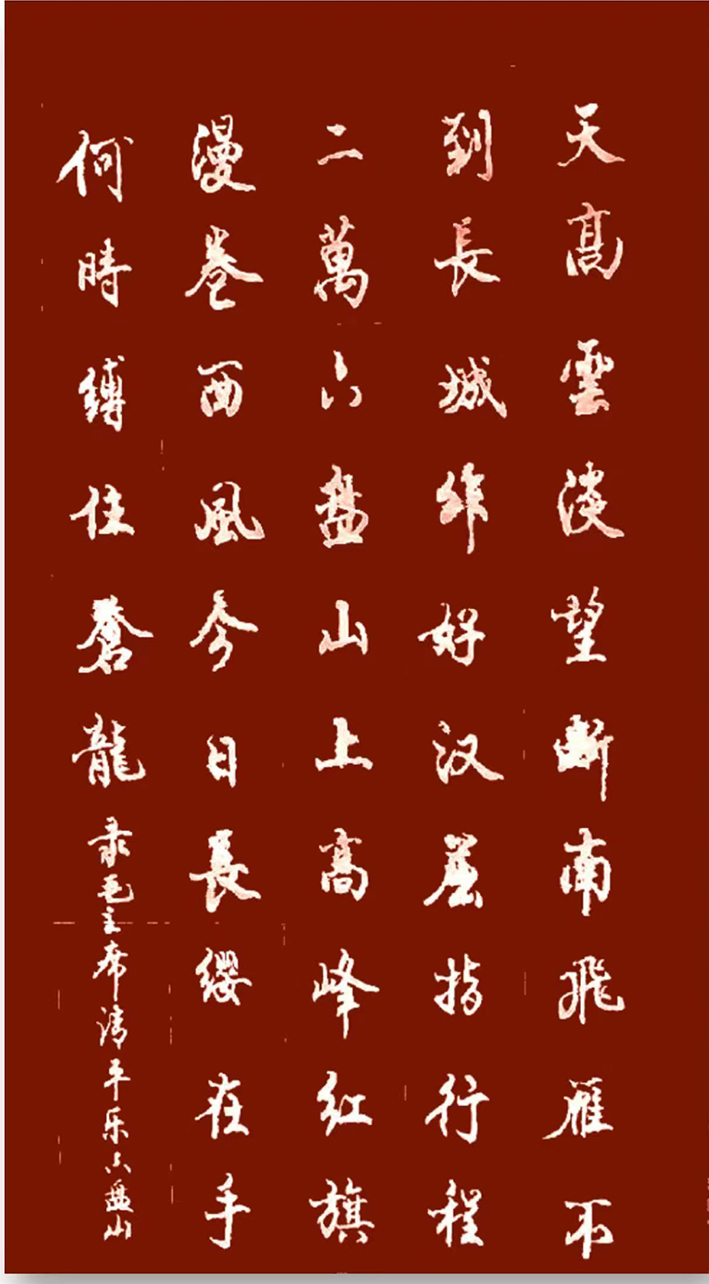 天高雲淡望斷南飛雁不
到長城非好汉屈指行程
二萬六盘山上高峰红旗
漫卷西風今日長缨在手
何時縛住蒼龍
录毛主席清平乐六盘山